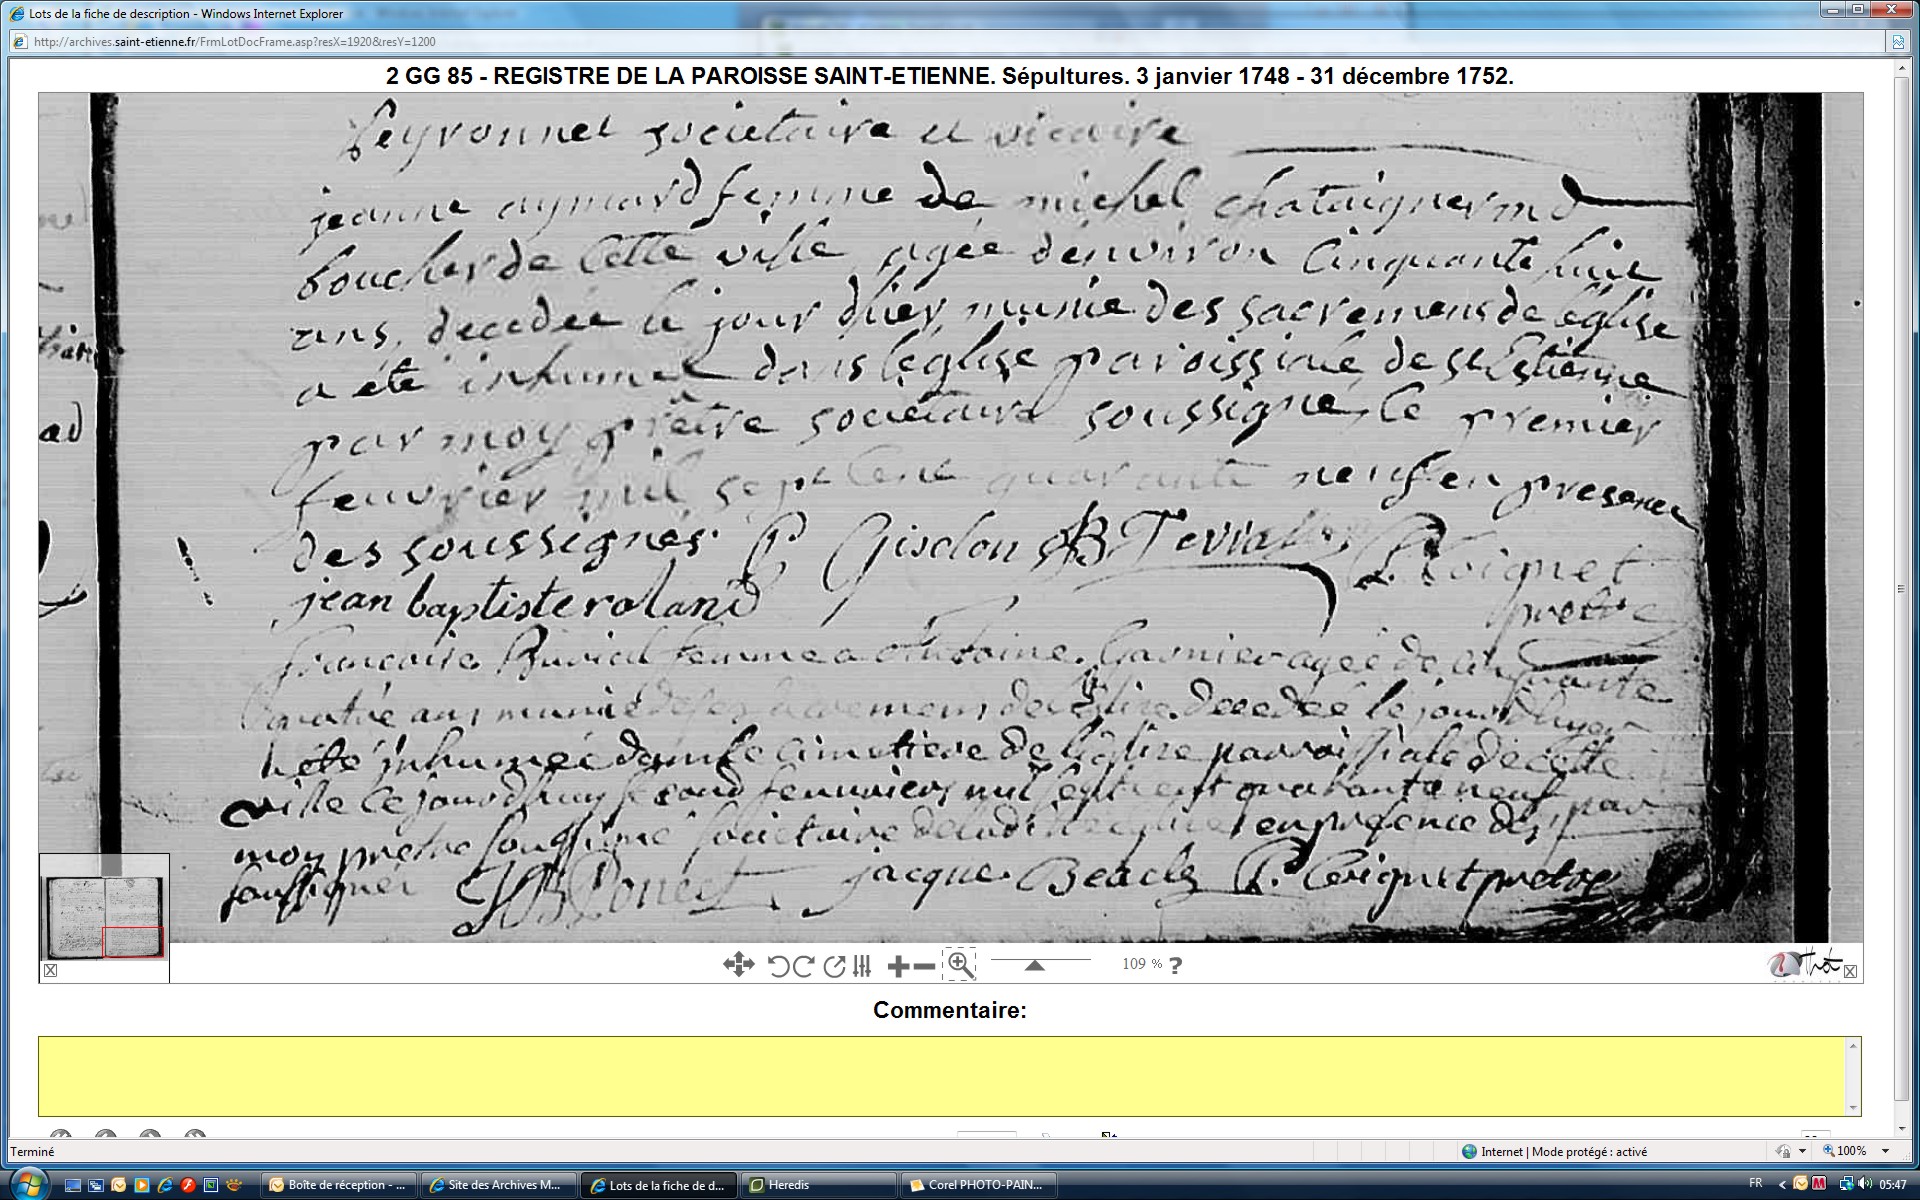 Lots de la fiche de description - Windows Internet Explorer
http://archives.saint-etienne.fr/FrmLotDocFrame.asp?resX=1920&resY=1200
2 GG 85 - REGISTRE DE LA PAROISSE SAINT-ETIENNE. Sépultures. 3 janvier 1748 - 31 décembre 1752.
peyronnet societaire et vicaire
jeanne aymard femme de michel chataigner md
boucher de cette ville agée denviron cinquante huit
ans, decedée le jour dhier munie des sacremens de léglise
a été inhumé dans léglise paroissiale de st Estienne
par moy prêtre societaire soussigné, le premier
feuvrier mil sept cent quarante neuf en presence
des soussignés. P Gisclon JB Tevra Coignet
jean baptiste roland prêtre
francoise femme a Antoine Garnier agée de cinquante
quatre ans munie de ses sacremens de léglise decedée le jour dhyer
a été inhumée dans le cimetiere de léglise parroissiale de cette
ville ce jourdhuy second feuvrier mil sept cent quarante neuf par
moy pretre soussigné societaire de ladite eglise en presence des
soussignés JB Ponect jacque Beacle P. Coignet pretre
109 % ?
Commentaire:
Terminé
Internet | Mode protégé : activé
100%
Boîte de réception - ...
Site des Archives M...
Lots de la fiche de d...
Heredis
Corel PHOTO-PAIN...
FR
05:47